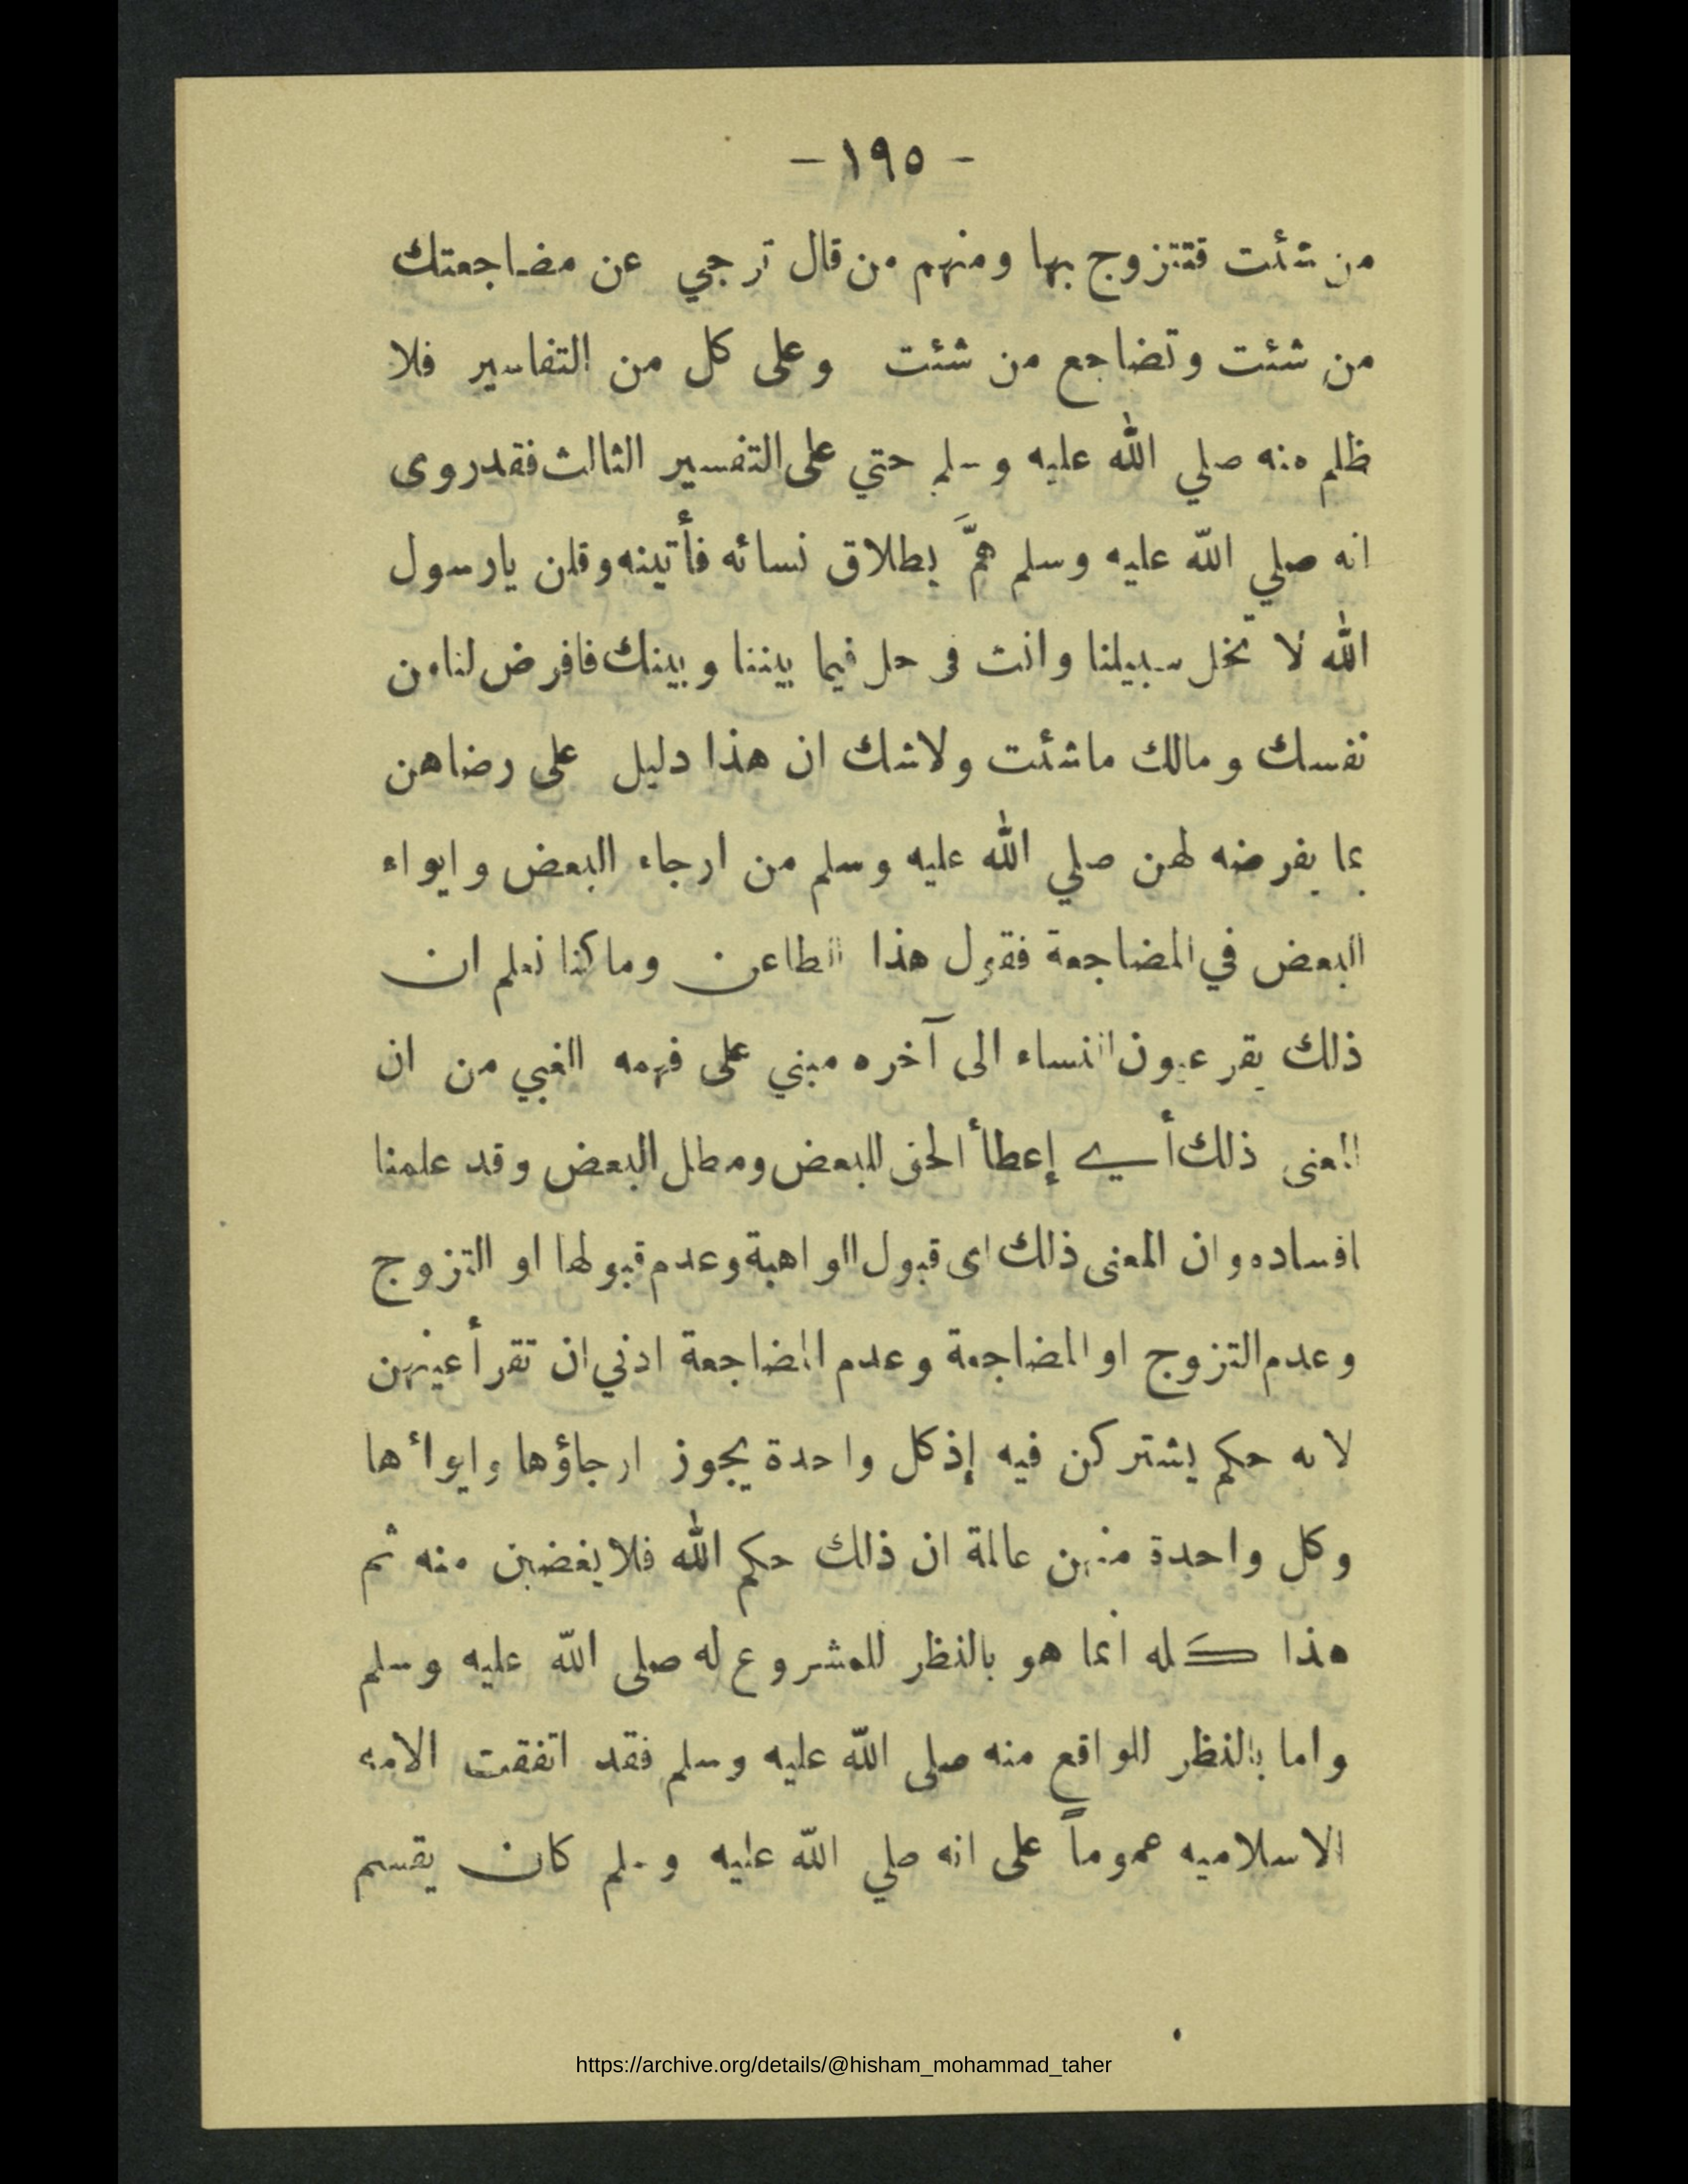 - ١٩٥ -
من شئت فتتزوج بها ومنهم من قال ترجي عن مضاجعتك
من شئت وتضاجع من شئت وعلى كل من التفاسير فلا
ظلم منه صلي الله عليه وسلم حتي على التفسير الثالث فقد روى
انه صلي الله عليه وسلم همَّ بطلاق نسائه فأتينه وقلن يارسول
الله لا تخل سبيلنا وانت في حل فيما بيننا وبينك فافرض لنا من
نفسك ومالك ماشئت ولاشك ان هذا دليل على رضاهن
بما يفرضه لهن صلي الله عليه وسلم من ارجاء البعض وايواء
البعض في المضاجعة فقول هذا الطاعن وما كنا نعلم ان
ذلك يقر عيون النساء الى آخره مبني على فهمه الغبي من ان
المعنى ذلك أي إعطأ الحق للبعض ومطل البعض وقد علمنا
افساده وان المعنى ذلك اى قبول الواهبة وعدم قبولها او التزوج
وعدم التزوج او المضاجعة وعدم المضاجعة ادني ان تقر أعينهن
لانه حكم يشتركن فيه إذ كل واحدة يجوز ارجاؤها وايوأها
وكل واحدة منهن عالمة ان ذلك حكم الله فلا يغضبن منه ثم
هذا كله انما هو بالنظر للمشروع له صلى الله عليه وسلم
واما بالنظر للواقع منه صلى الله عليه وسلم فقد اتفقت الامه
الاسلاميه عموماً على انه صلي الله عليه وسلم كان يقسم
https://archive.org/details/@hisham_mohammad_taher